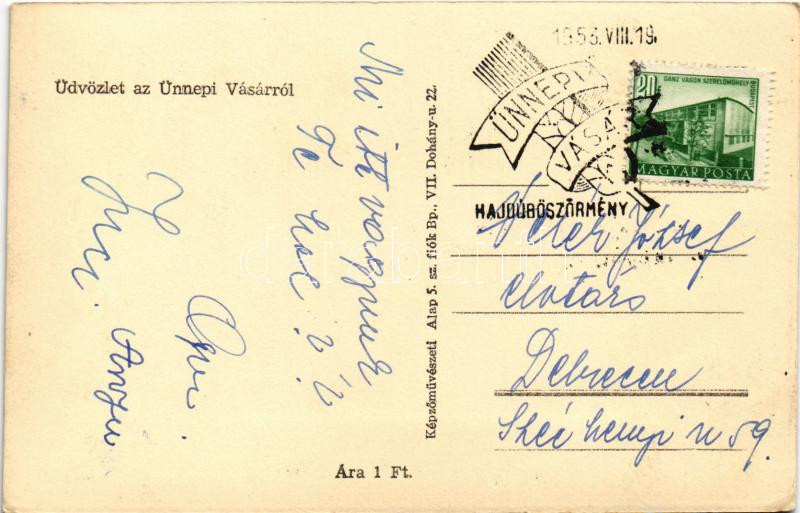 Üdvözlet az Ünnepi Vásárról
Mi itt vagyunk
Te hol? ?
Apu.
Anyu
Ára 1 Ft.
Képzőművészeti Alap 5. sz. fiók Bp., VII. Dohány-u. 22.
1953.VIII.19.
ÜNNEPI
VÁSÁ
HAJDÚBÖSZÖRMÉNY
20
GANZ VAGON SZERELŐMŰHELY
BUDAPEST
MAGYAR POSTA
József
elvtárs
Debrecen
59.
darabanth